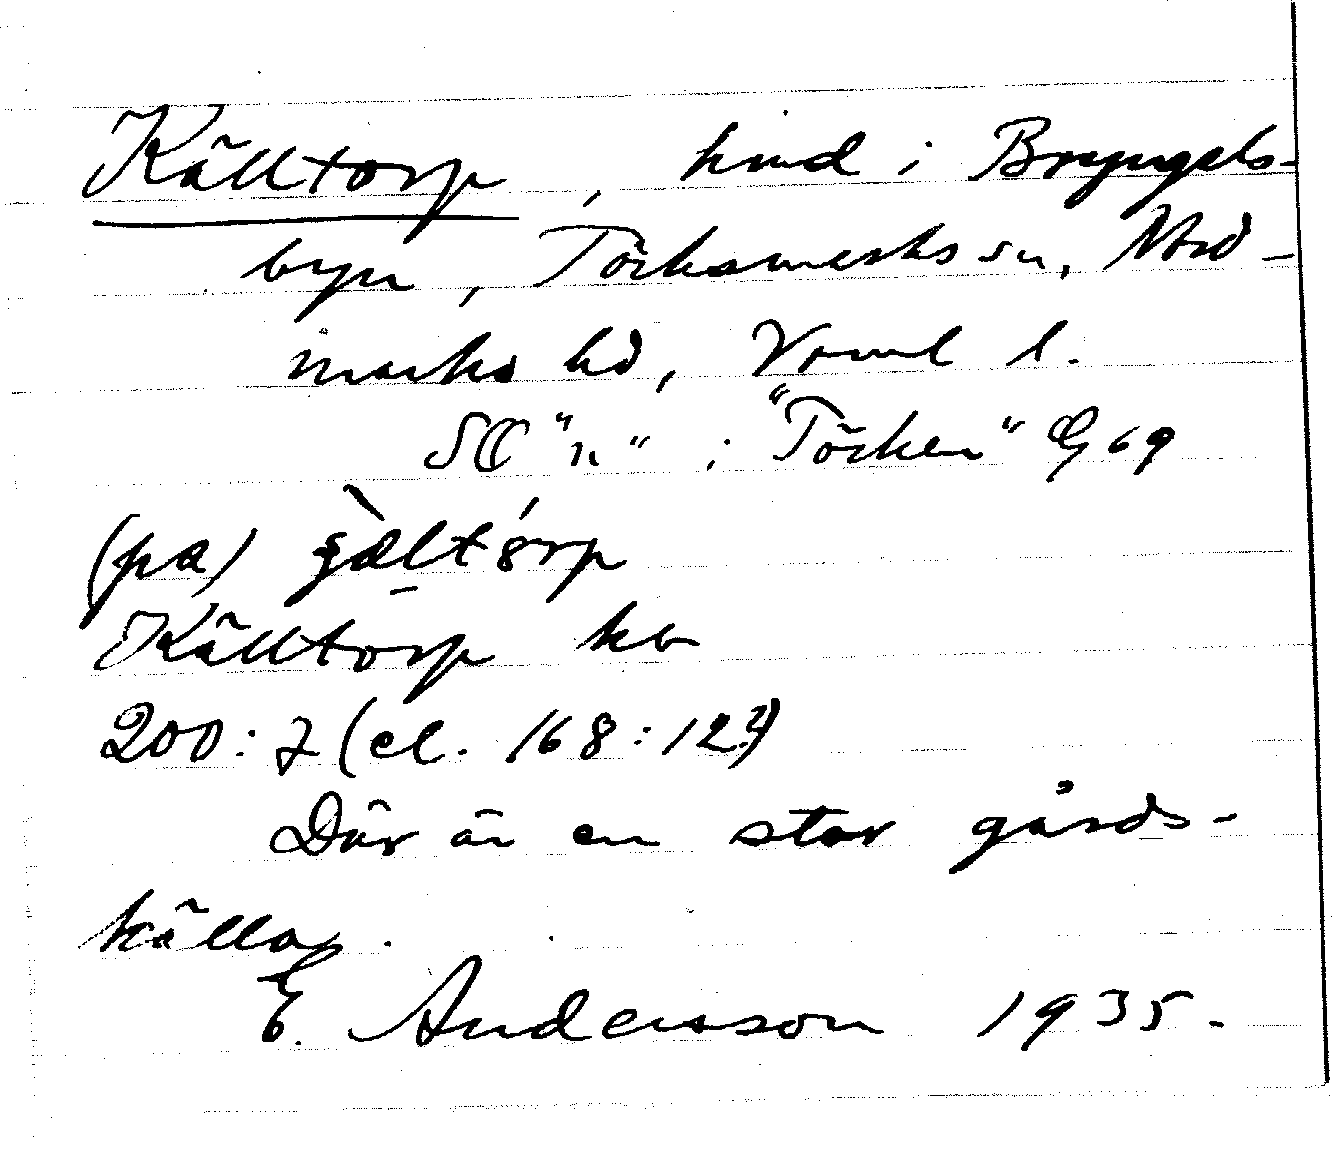 Källtorp, hmd i Bryngels-
byn, Töcksmarks sn, Nord-
marks hd, Värml l.
SO "n" i "Töcken" G 69
(pa)
Källtorp kb
200:7 (el. 168:12?)
Där är en stor gårds-
källa.
E. Andersson 1935.